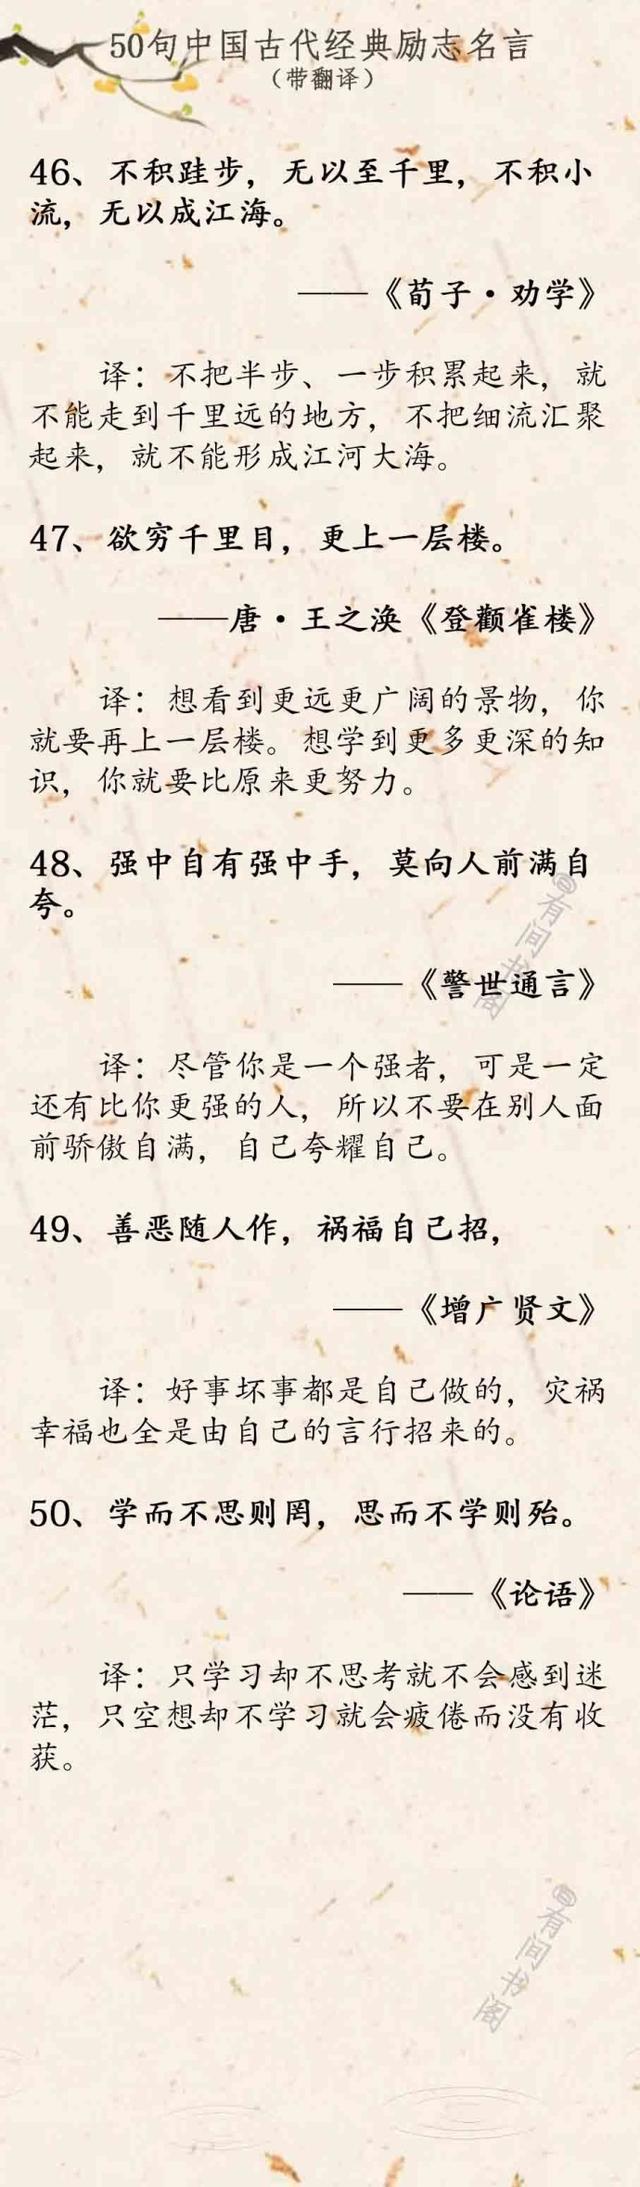 50句中国古代经典励志名言
（带翻译）
46、不积跬步，无以至千里，不积小
流，无以成江海。
——《荀子·劝学》
译：不把半步、一步积累起来，就
不能走到千里远的地方，不把细流汇聚
起来，就不能形成江河大海。
47、欲穷千里目，更上一层楼。
——唐·王之涣《登颧雀楼》
译：想看到更远更广阔的景物，你
就要再上一层楼。想学到更多更深的知
识，你就要比原来更努力。
48、强中自有强中手，莫向人前满自
夸。
@有间书阁
——《警世通言》
译：尽管你是一个强者，可是一定
还有比你更强的人，所以不要在别人面
前骄傲自满，自己夸耀自己。
49、善恶随人作，祸福自己招，
——《增广贤文》
译：好事坏事都是自己做的，灾祸
幸福也全是由自己的言行招来的。
50、学而不思则罔，思而不学则殆。
——《论语》
译：只学习却不思考就不会感到迷
茫，只空想却不学习就会疲倦而没有收
获。
@有间书阁